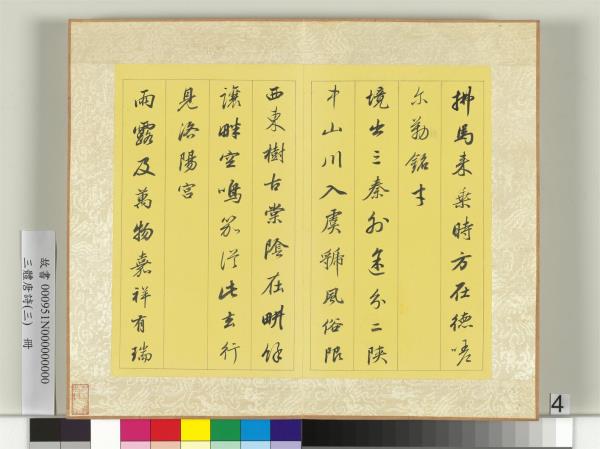 拂馬来乘時方在德嗟
尔勒銘才
境出三秦外途分二陝
中山川入虞虢風俗限
西東樹古棠陰在畊餘
讓畔空鳴笳從此去行
見洛陽宫
雨露及萬物嘉祥有瑞
故書 000951N000000000
三體唐詩(三) 冊
4